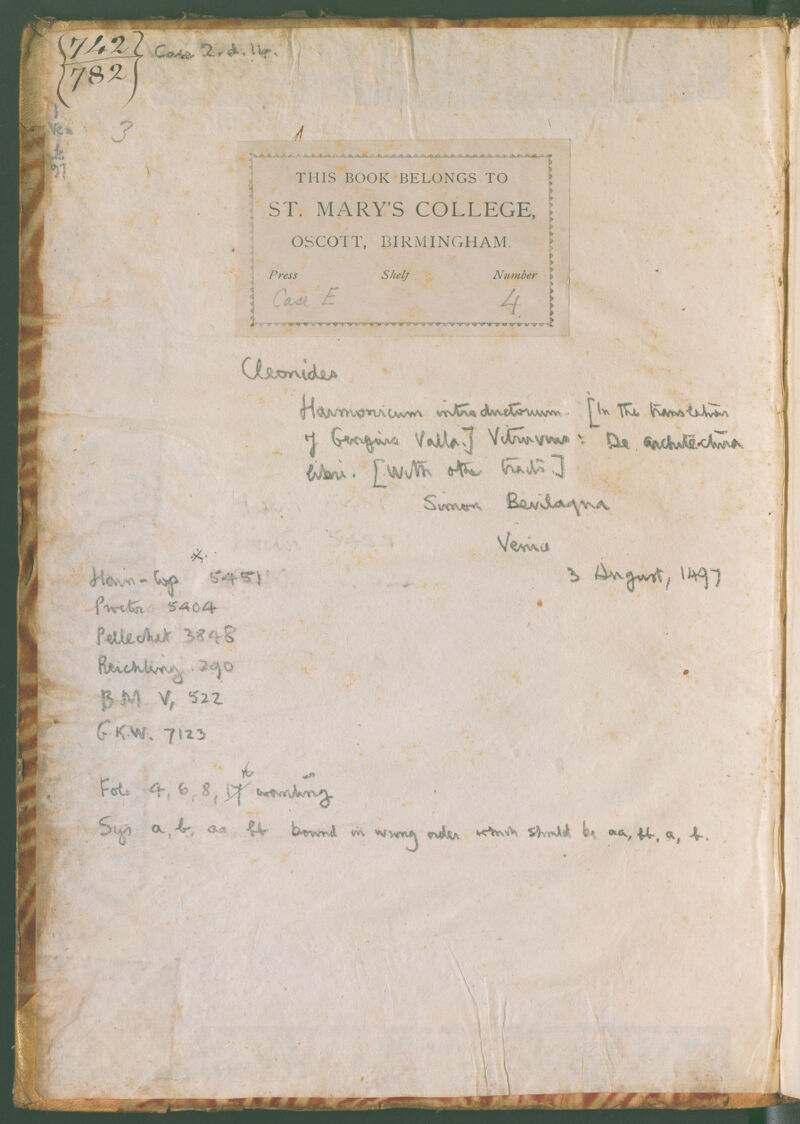 742
782
Case 2.d.14.
3
1
THIS BOOK BELONGS TO
ST. MARY'S COLLEGE,
OSCOTT, BIRMINGHAM.
Press Shelf Number
Case E 4
Cleonides
Harmonicum introductorium. [In the translation
of Georgius Valla.] Vitruvius: De architectura
libri. [With other tracts.]
Simon Bevilaqua
Venice
3 August, 1497
Hain-Cop *5451
Proctor 5404
Pellechet 3848
Reichling 290
BM V, 522
G.K.W. 7123
Fol. 4, 6, 8, wanting
Sigs a, b, aa bb bound in wrong order which should be aa, bb, a, b.